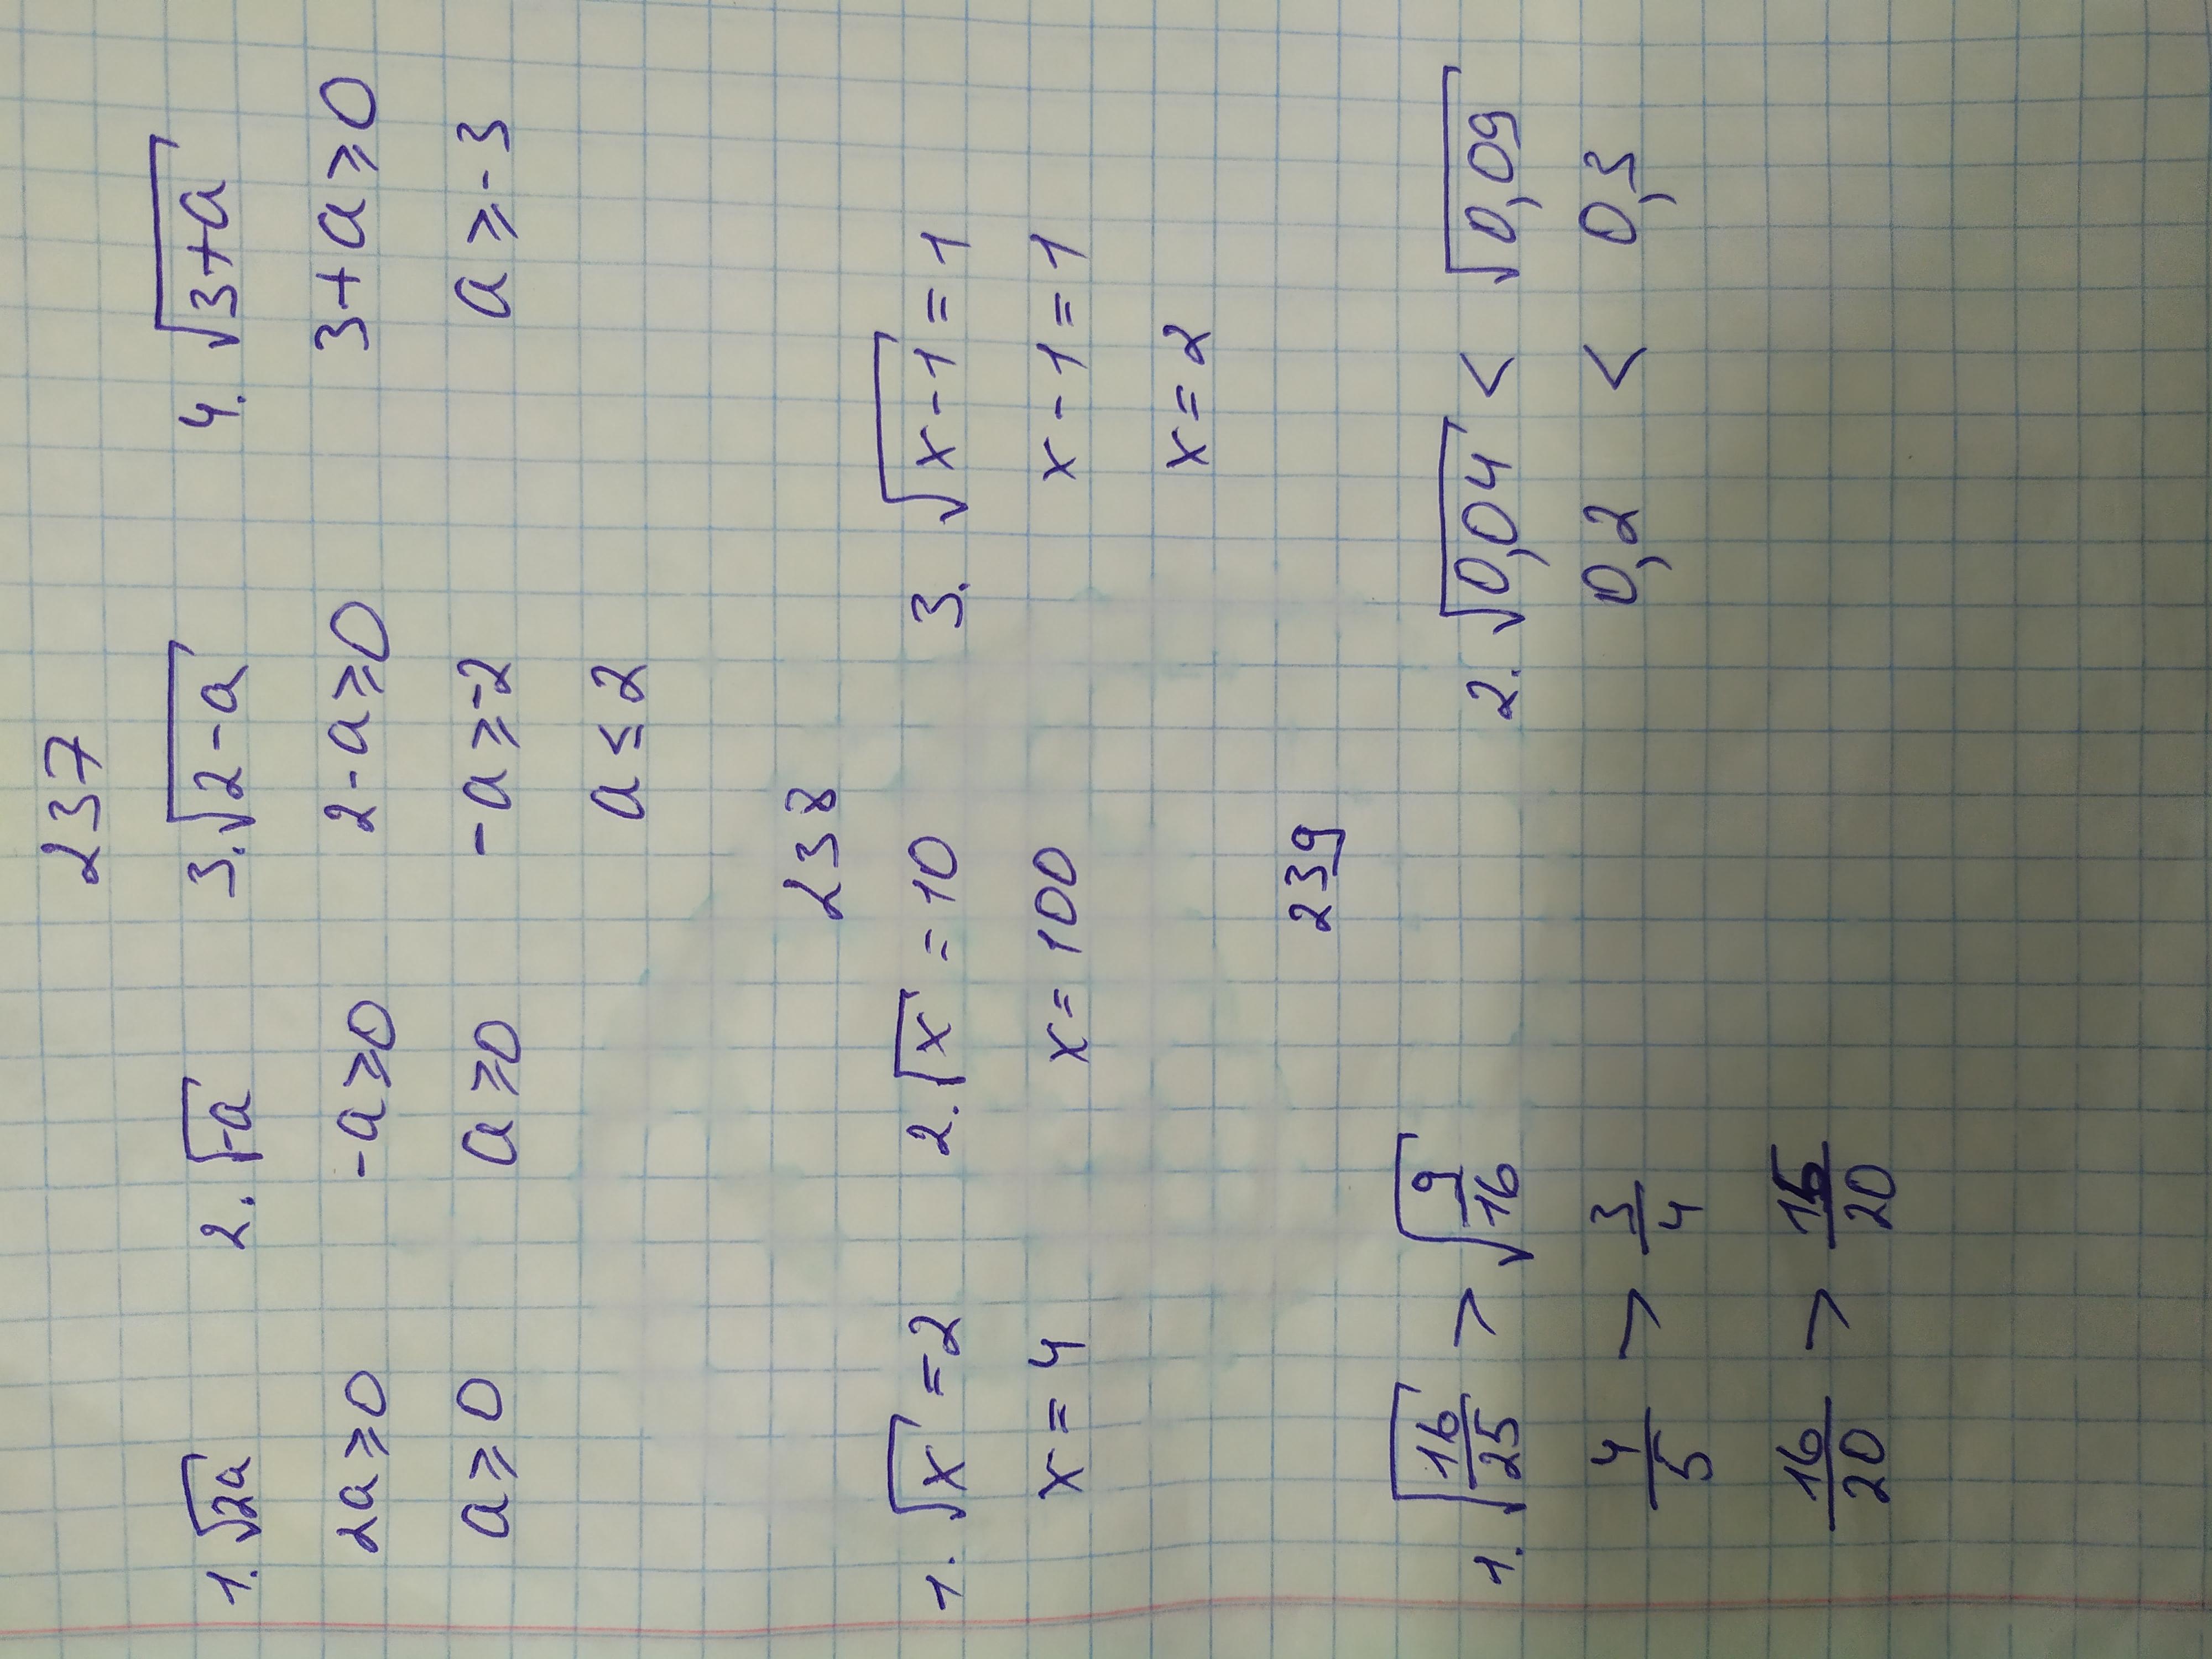 237
1. √2a 2. √-a 3. √2-a 4. √3+a
2a ≥ 0 -a ≥ 0 2-a ≥ 0 3+a ≥ 0
a ≥ 0 a ≥ 0 -a ≥ -2 a ≥ -3
a ≤ 2
238
1. √x = 2 2. √x = 10 3. √x-1 = 1
x = 4 x = 100 x-1 = 1
x = 2
239
1. √16/25 > √9/16 2. √0,04 < √0,09
4/5 > 3/4 0,2 < 0,3
16/20 > 15/20